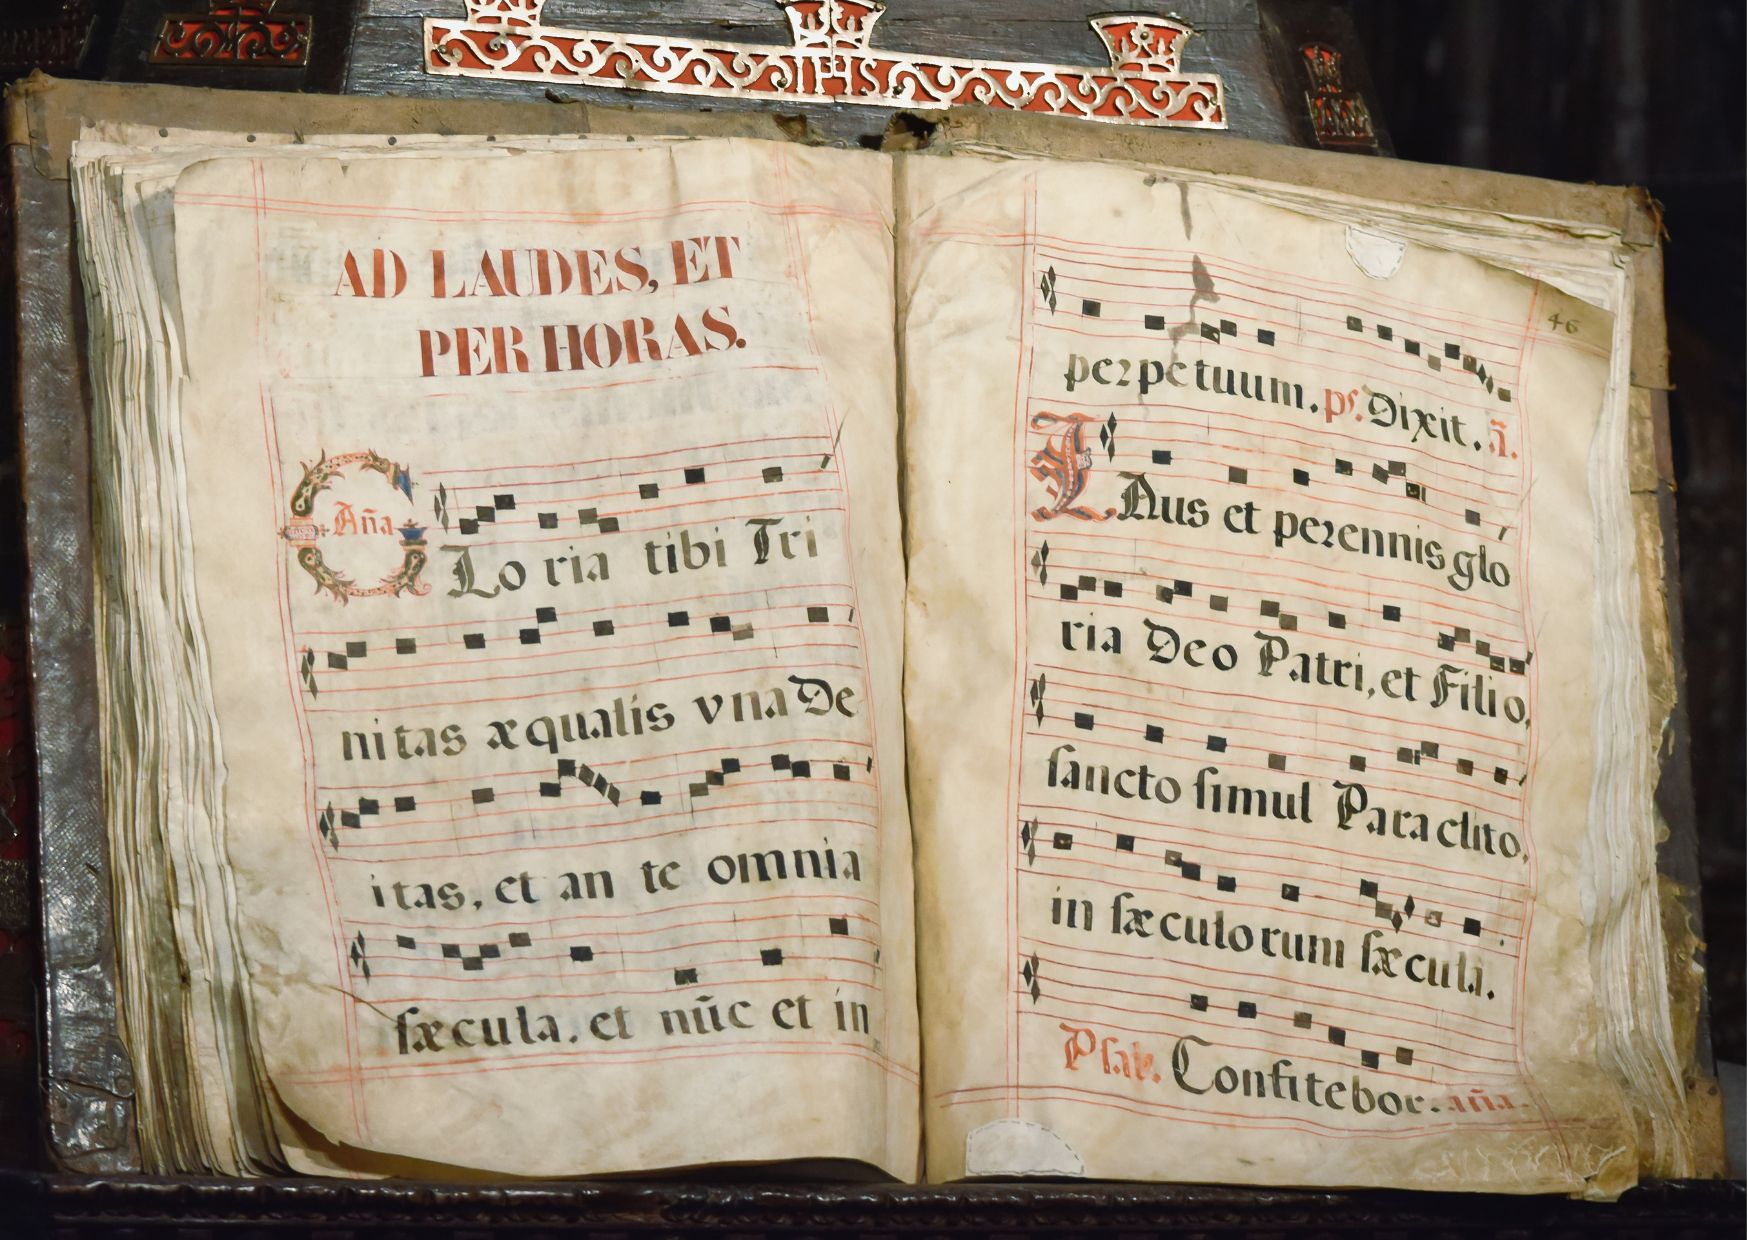 IHS
AD LAUDES, ET
PER HORAS.
Aña
GLo ria tibi Tri
ni tas æqualis vna De
itas, et an te omnia
sæcula. et nūc et in
46
perpetuum. ps. Dixit. ā.
LAus et perennis glo
ria Deo Patri, et Filio,
sancto simul Paraclito,
in sæculorum sæcula.
Psal. Confitebor. aña.